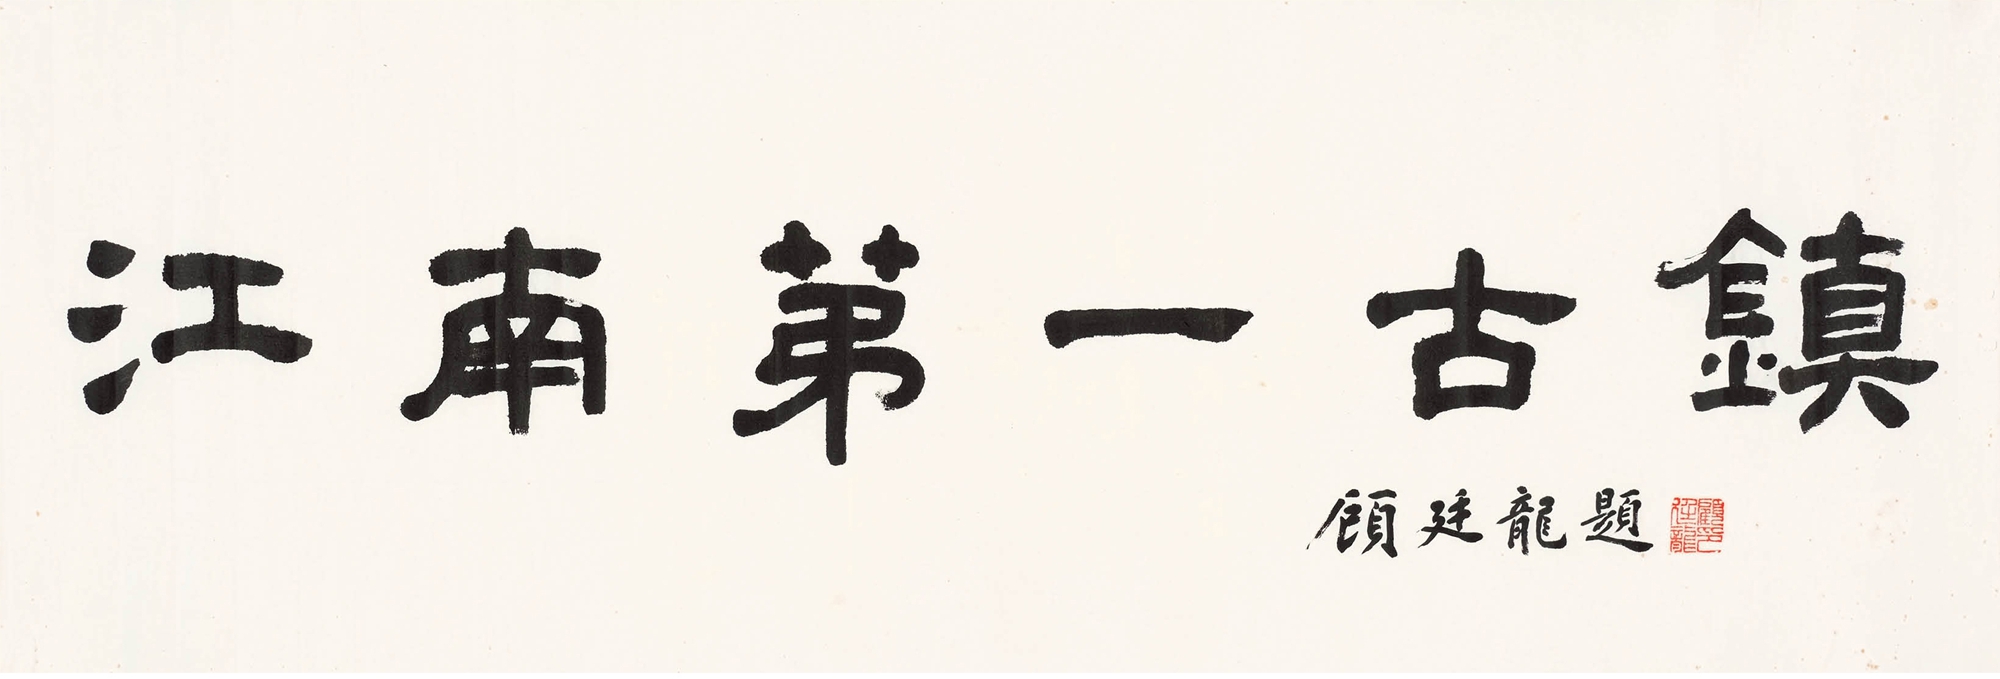 江南第一古鎮
顧廷龍題
顧印廷龍